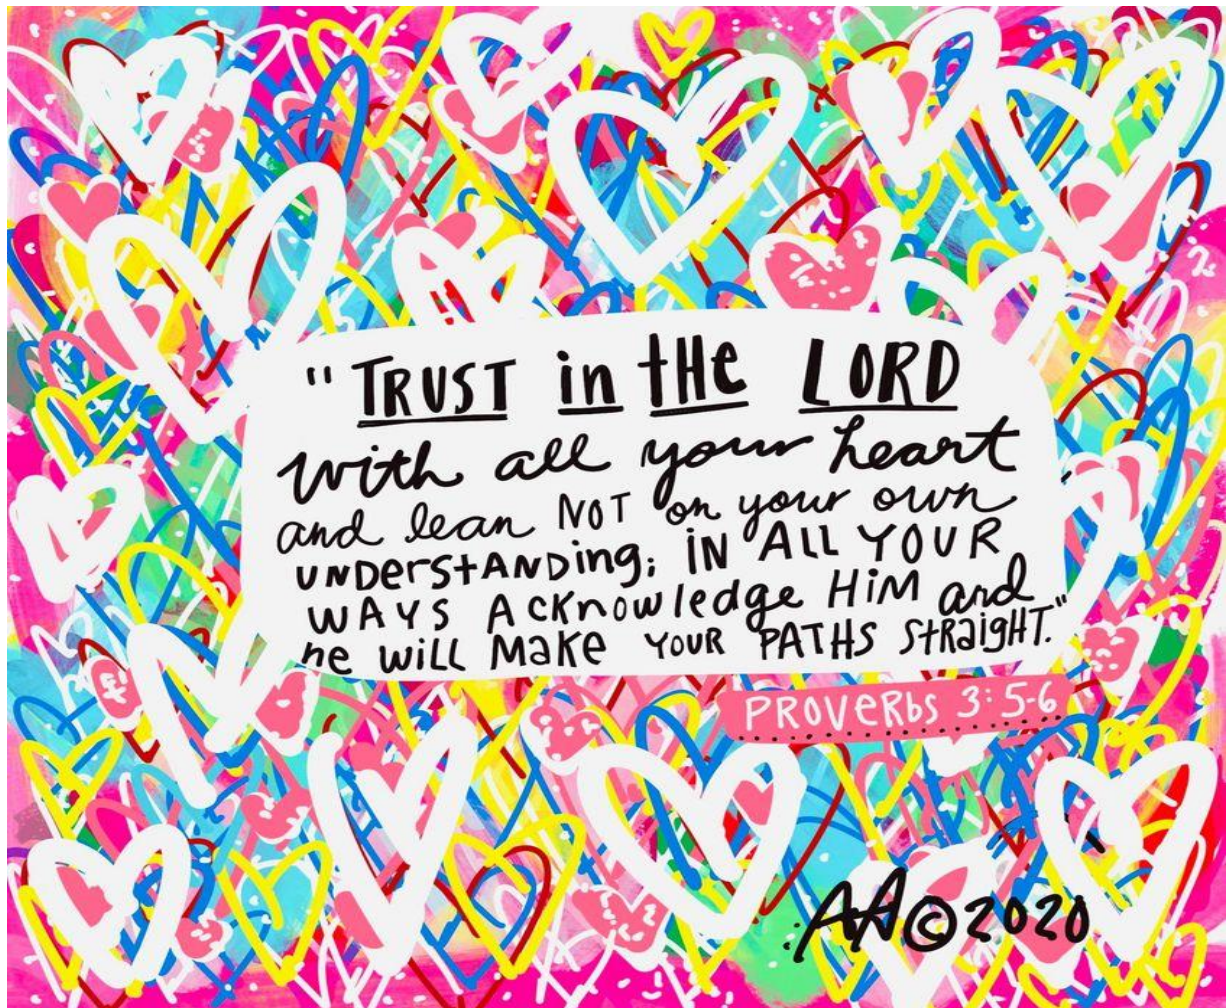 "TRUST in tHe LORD
with all your heart
and lean NOT on your own
UNDerstANDing; iN ALL YOUR
WAYS AcKnowledge HiM and
he wiLL MaKe YOUR PATHS StRaigHT."
PROVERbs 3:5-6
AA©2020